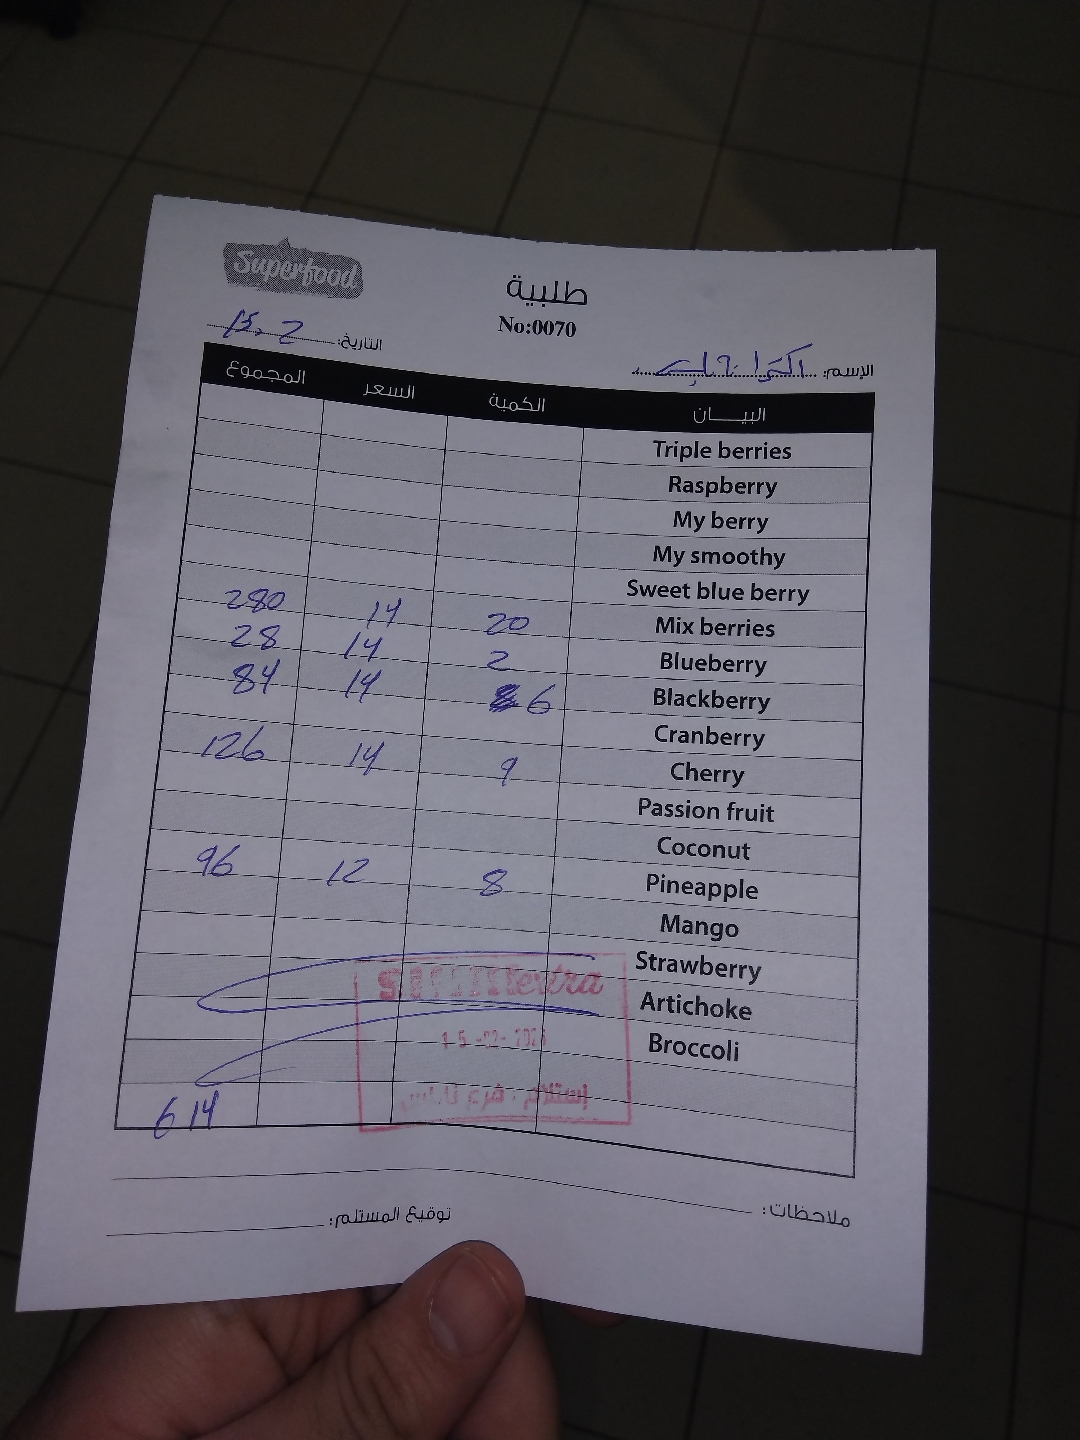 Superfood
طلبية
No:0070
الإسم: اكسترا نابلس
التاريخ: 15. 2
البيـــان الكمية السعر المجموع
Triple berries
Raspberry
My berry
My smoothy
Sweet blue berry
Mix berries 20 14 280
Blueberry 2 14 28
Blackberry 6 14 84
Cranberry
Cherry 9 14 126
Passion fruit
Coconut
Pineapple 8 12 96
Mango
Strawberry
Artichoke
Broccoli
extra
15-02-
إستلام : فرع نابلس
614
ملاحظات:
توقيع المستلم: